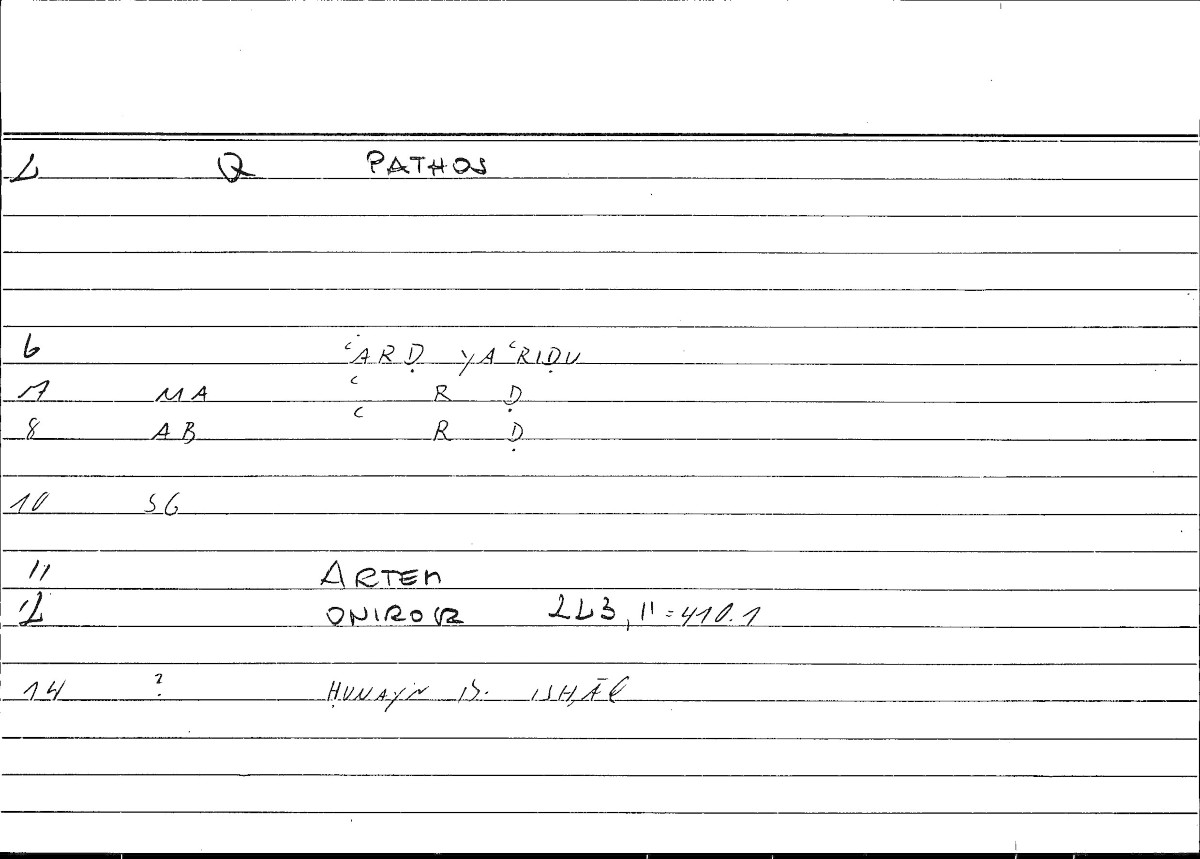 2 Q PATHOS
6 ʿARḌ YAʿRIḌU
7 MA ʿ R Ḍ
8 AB ʿ R Ḍ
10 SG
11 ARTEM
12 ONIROCR 223, 11 = 410.1
14 ? ḤUNAYN B. ISḤĀQ